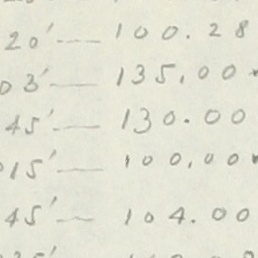 20′ — 100.28
03′ — 135,00
45′ — 130.00
015′ — 100,00
45′ — 104.00